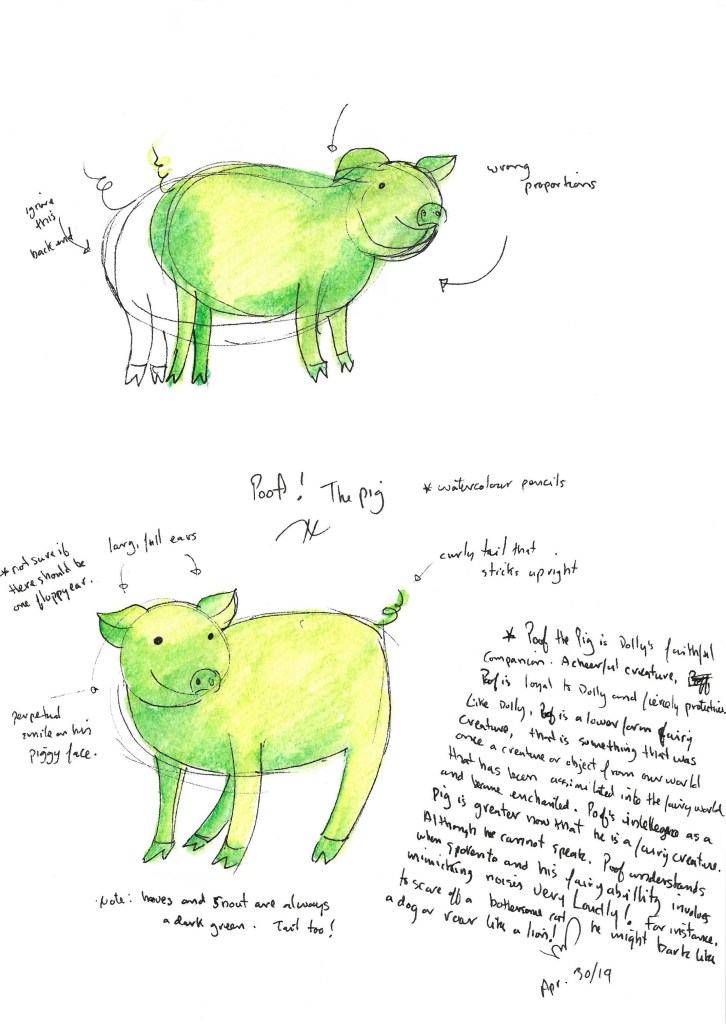 wrong
proportions
ignore
this
back end
Poof! The pig
* watercolour pencils
large, full ears
* not sure if
there should be
one floppy ear.
curly tail that
sticks upright
perpetual
smile on his
piggy face.
Note: hooves and snout are always
a dark green. Tail too!
* Poof the Pig is Dolly's faithful
companion. A cheerful creature,
Poof is loyal to Dolly and fiercely protective.
Like Dolly, Poof is a lower form fairy
creature, that is something that was
once a creature or object from our world
that has been assimilated into the fairy world
and became enchanted. Poof's intelligence as a
pig is greater now that he is a fairy creature.
Although he cannot speak, Poof understands
when spoken to and his fairy ability involves
mimicking noises very Loudly! For instance,
to scare off a bothersome cat he might bark like
a dog or roar like a lion!
Apr. 30/19